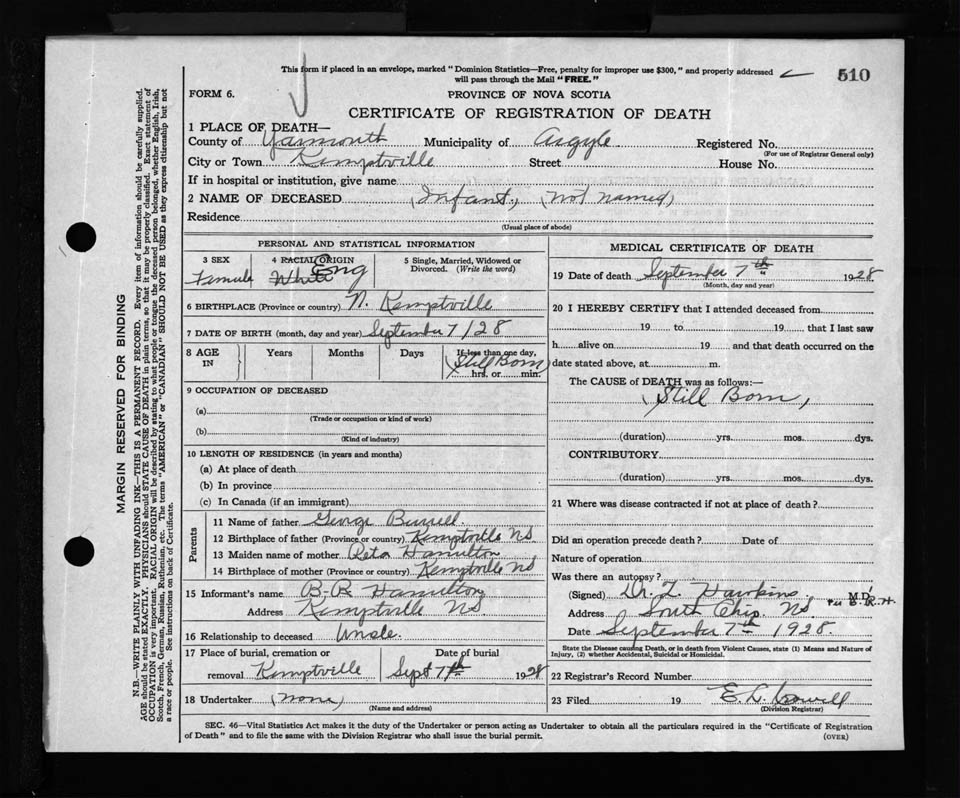 This form if placed in an envelope, marked "Dominion Statistics—Free, penalty for improper use $300," and properly addressed
will pass through the Mail "FREE."
510
FORM 6.
PROVINCE OF NOVA SCOTIA
CERTIFICATE OF REGISTRATION OF DEATH
1 PLACE OF DEATH—
County of Yarmouth Municipality of Argyle Registered No.
(For use of Registrar General only)
City or Town Kemptville Street House No.
If in hospital or institution, give name
2 NAME OF DECEASED (Infant, (Not named)
Residence
(Usual place of abode)
PERSONAL AND STATISTICAL INFORMATION
3 SEX
Female
4 RACIAL ORIGIN
White Eng
5 Single, Married, Widowed or Divorced. (Write the word)
6 BIRTHPLACE (Province or country) N. Kemptville
7 DATE OF BIRTH (month, day and year) September 7/28
8 AGE IN
Years
Months
Days
If less than one day,
(Still Born)
hrs. or min.
9 OCCUPATION OF DECEASED
(a)
(Trade or occupation or kind of work)
(b)
(Kind of industry)
10 LENGTH OF RESIDENCE (in years and months)
(a) At place of death
(b) In province
(c) In Canada (if an immigrant)
Parents
11 Name of father George Burrell
12 Birthplace of father (Province or country) Kemptville NS
13 Maiden name of mother Reta Hamilton
14 Birthplace of mother (Province or country) Kemptville NS
15 Informant's name B-R Hamilton
Address Kemptville NS
16 Relationship to deceased Uncle.
17 Place of burial, cremation or
removal Kemptville
Date of burial
Sept 7th 1928
18 Undertaker (None)
(Name and address)
MEDICAL CERTIFICATE OF DEATH
19 Date of death September 7th 1928
(Month, day and year)
20 I HEREBY CERTIFY that I attended deceased from
19 to 19 that I last saw
h alive on 19 and that death occurred on the
date stated above, at m.
The CAUSE of DEATH was as follows:—
(Still Born)
(duration) yrs. mos. dys.
CONTRIBUTORY
(duration) yrs. mos. dys.
21 Where was disease contracted if not at place of death?
Did an operation precede death? Date of
Nature of operation
Was there an autopsy?
(Signed) Dr. Hawkins M.D.
Per B.R.H.
Address South Ohio NS
Date September 7th 1928.
State the Disease causing Death, or in death from Violent Causes, state (1) Means and Nature of
Injury, (2) whether Accidental, Suicidal or Homicidal.
22 Registrar's Record Number
23 Filed 19 E. L.
(Division Registrar)
SEC. 46—Vital Statistics Act makes it the duty of the Undertaker or person acting as Undertaker to obtain all the particulars required in the "Certificate of Registration
of Death" and to file the same with the Division Registrar who shall issue the burial permit.
(OVER)
MARGIN RESERVED FOR BINDING
N.B.—WRITE PLAINLY WITH UNFADING INK—THIS IS A PERMANENT RECORD. Every item of information should be carefully supplied.
AGE should be stated EXACTLY. PHYSICIANS should STATE CAUSE OF DEATH in plain terms, so that it may be properly classified. Exact statement of
OCCUPATION is very important. RACIAL ORIGIN will be described by stating to what people or tongue the deceased person belonged, whether English, Irish,
Scotch, French, German, Russian, Ruthenian, etc. The terms "AMERICAN" or "CANADIAN" SHOULD NOT BE USED as they express citizenship but not
a race or people. See instructions on back of Certificate.